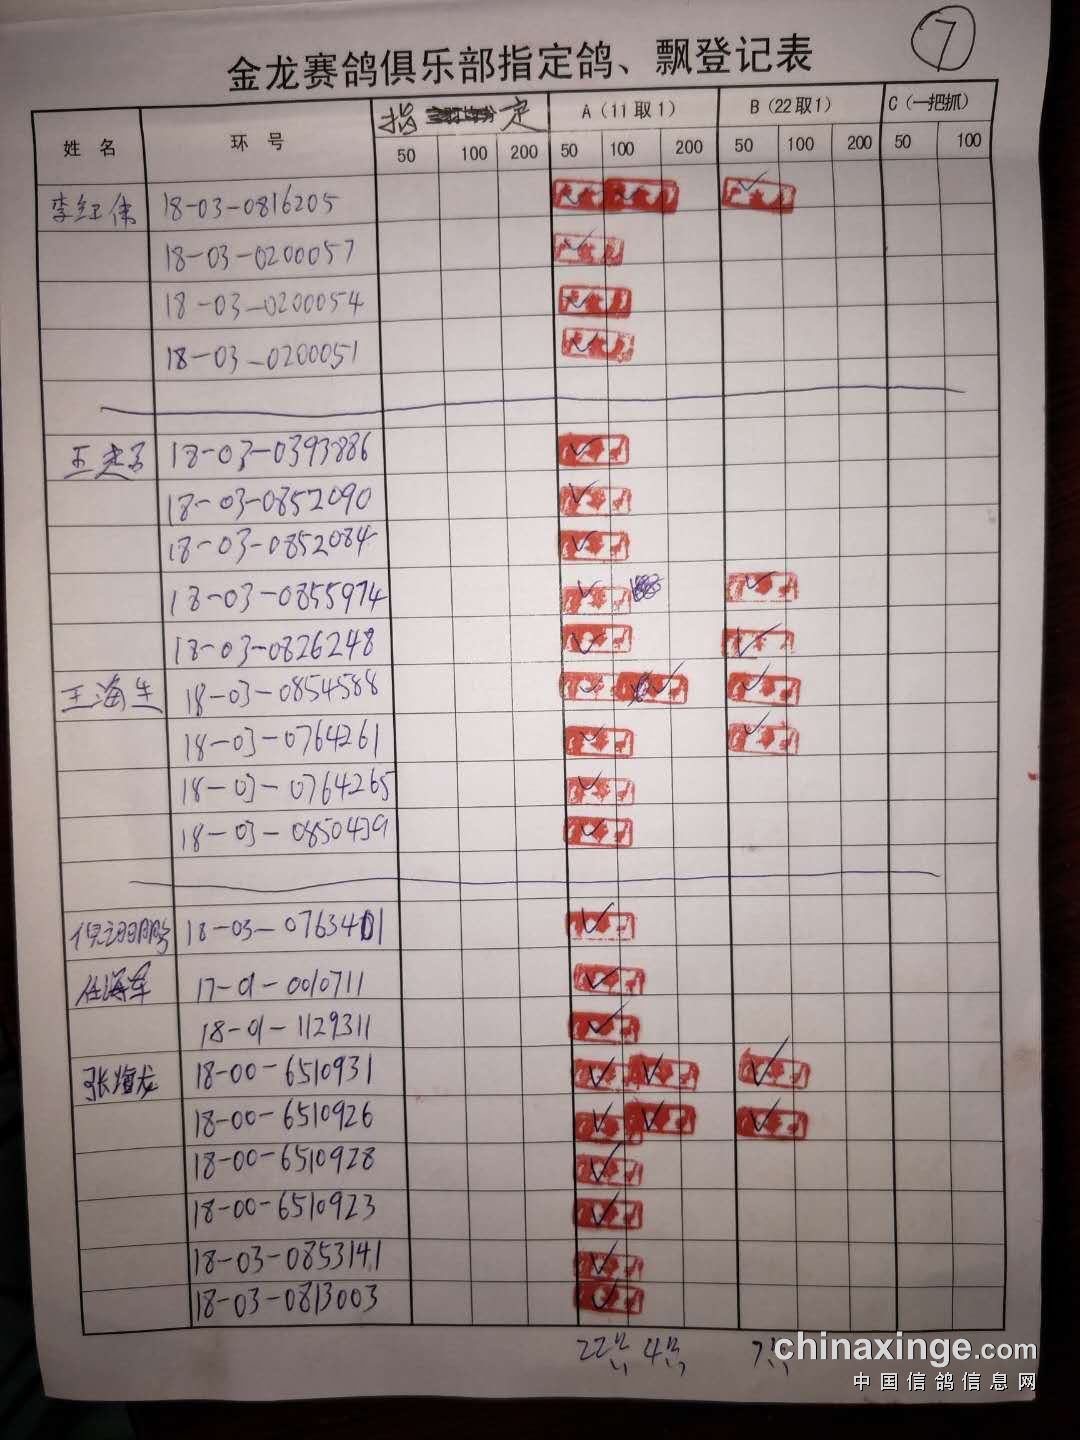 7
金龙赛鸽俱乐部指定鸽、飘登记表
姓 名 环 号 指 定 A（11取1） B（22取1） C（一把抓）
50 100 200 50 100 200 50 100 200 50 100
李红伟 18-03-0816205
18-03-0200057
18-03-0200054
18-03-0200051
18-03-0393886
18-03-0852090
18-03-0852084
18-03-0855974
18-03-0826248
王海生 18-03-0854588
18-03-0764261
18-03-0764265
18-03-0850439
倪翊鹏 18-03-0763401
任海军 17-01-0010711
18-01-1129311
张海龙 18-00-6510931
18-00-6510926
18-00-6510928
18-00-6510923
18-03-0853141
18-03-0813003
22 4 7
chinaxinge.com
中国信鸽信息网